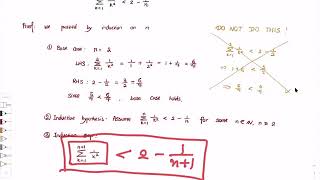 Proof: we proceed by induction on n
① Base case: n = 2
LHS: \sum_{k=1}^{2} \frac{1}{k^2} = \frac{1}{1} + \frac{1}{4} = 1 + \frac{1}{4} = \frac{5}{4}
RHS: 2 - \frac{1}{2} = \frac{3}{2} = \frac{6}{4}
Since \frac{5}{4} < \frac{6}{4}, base case holds.
② Inductive hypothesis: Assume \sum_{k=1}^{n} \frac{1}{k^2} < 2 - \frac{1}{n} for some n ∈ N, n ≥ 2
③ Induction step:
\sum_{k=1}^{n+1} \frac{1}{k^2} < 2 - \frac{1}{n+1}
DO NOT DO THIS!
\sum_{k=1}^{2} \frac{1}{k^2} < 2 - \frac{1}{2}
⇒ \frac{5}{4} < \frac{6}{4}